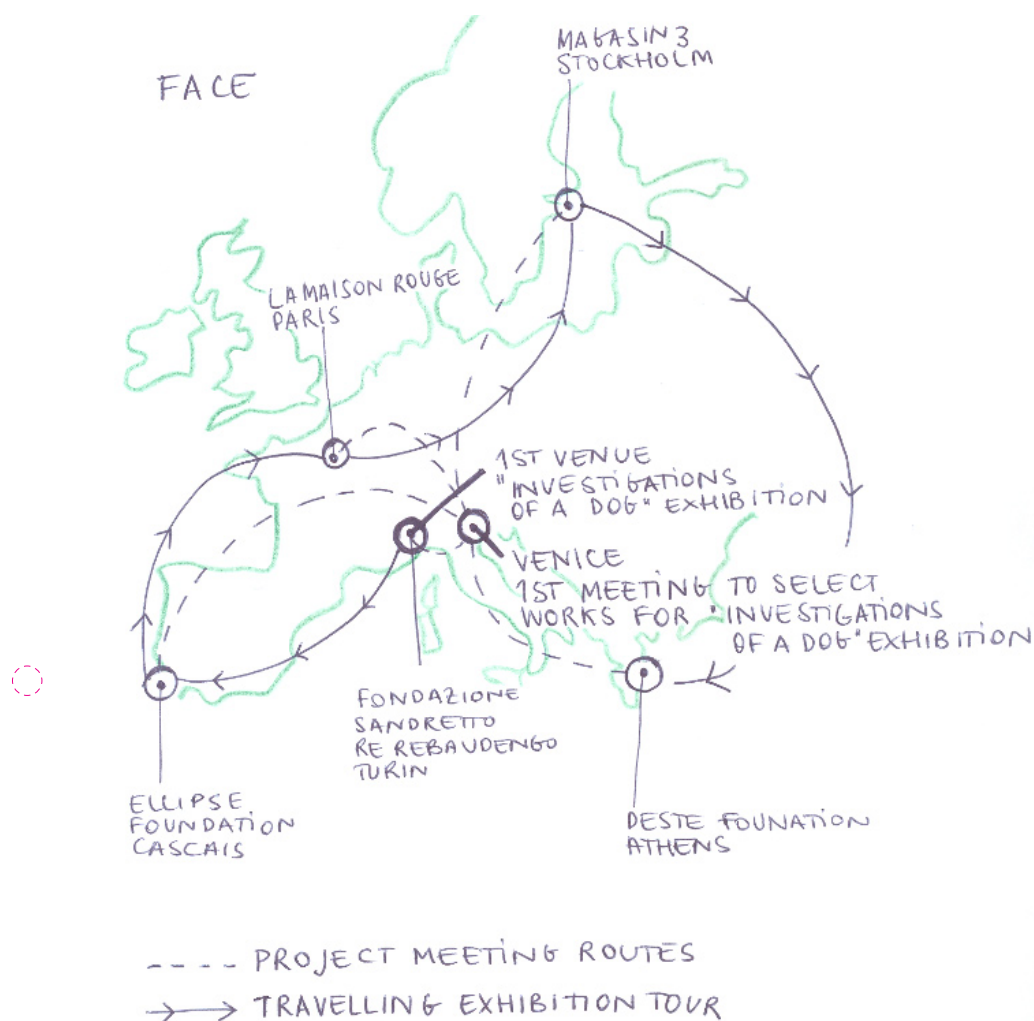 FACE
MAGASIN 3
STOCKHOLM
LA MAISON ROUGE
PARIS
1ST VENUE
"INVESTIGATIONS
OF A DOG" EXHIBITION
VENICE
1ST MEETING TO SELECT
WORKS FOR "INVESTIGATIONS
OF A DOG" EXHIBITION
FONDAZIONE
SANDRETTO
RE REBAUDENGO
TURIN
ELLIPSE
FOUNDATION
CASCAIS
DESTE FOUNATION
ATHENS
PROJECT MEETING ROUTES
TRAVELLING EXHIBITION TOUR